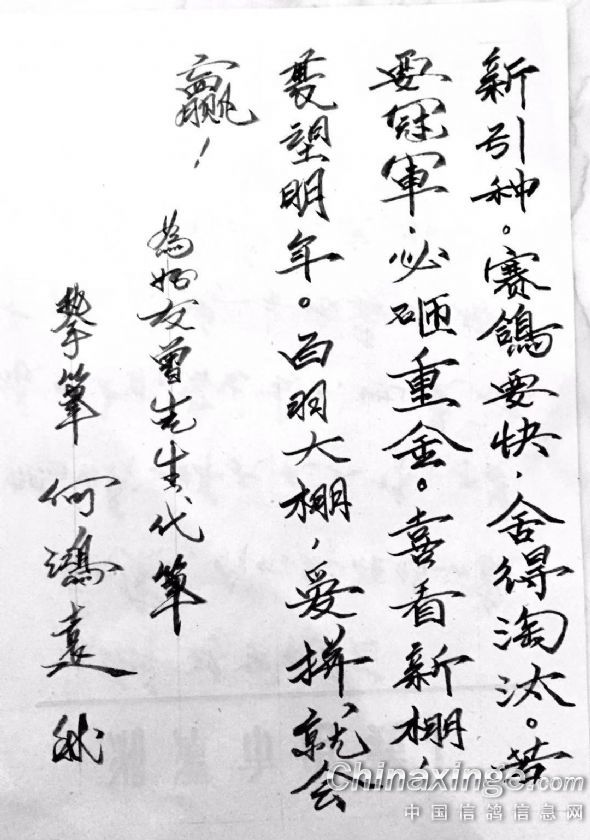 新引种。赛鸽要快，舍得淘汰。若
要冠軍，必砸重金。喜看新棚，
展望明年。百羽大棚，爱拼就会
赢！
為好友曾先生代筆
拏筆 何鴻意
Chinaxinge.com
中国信鸽信息网